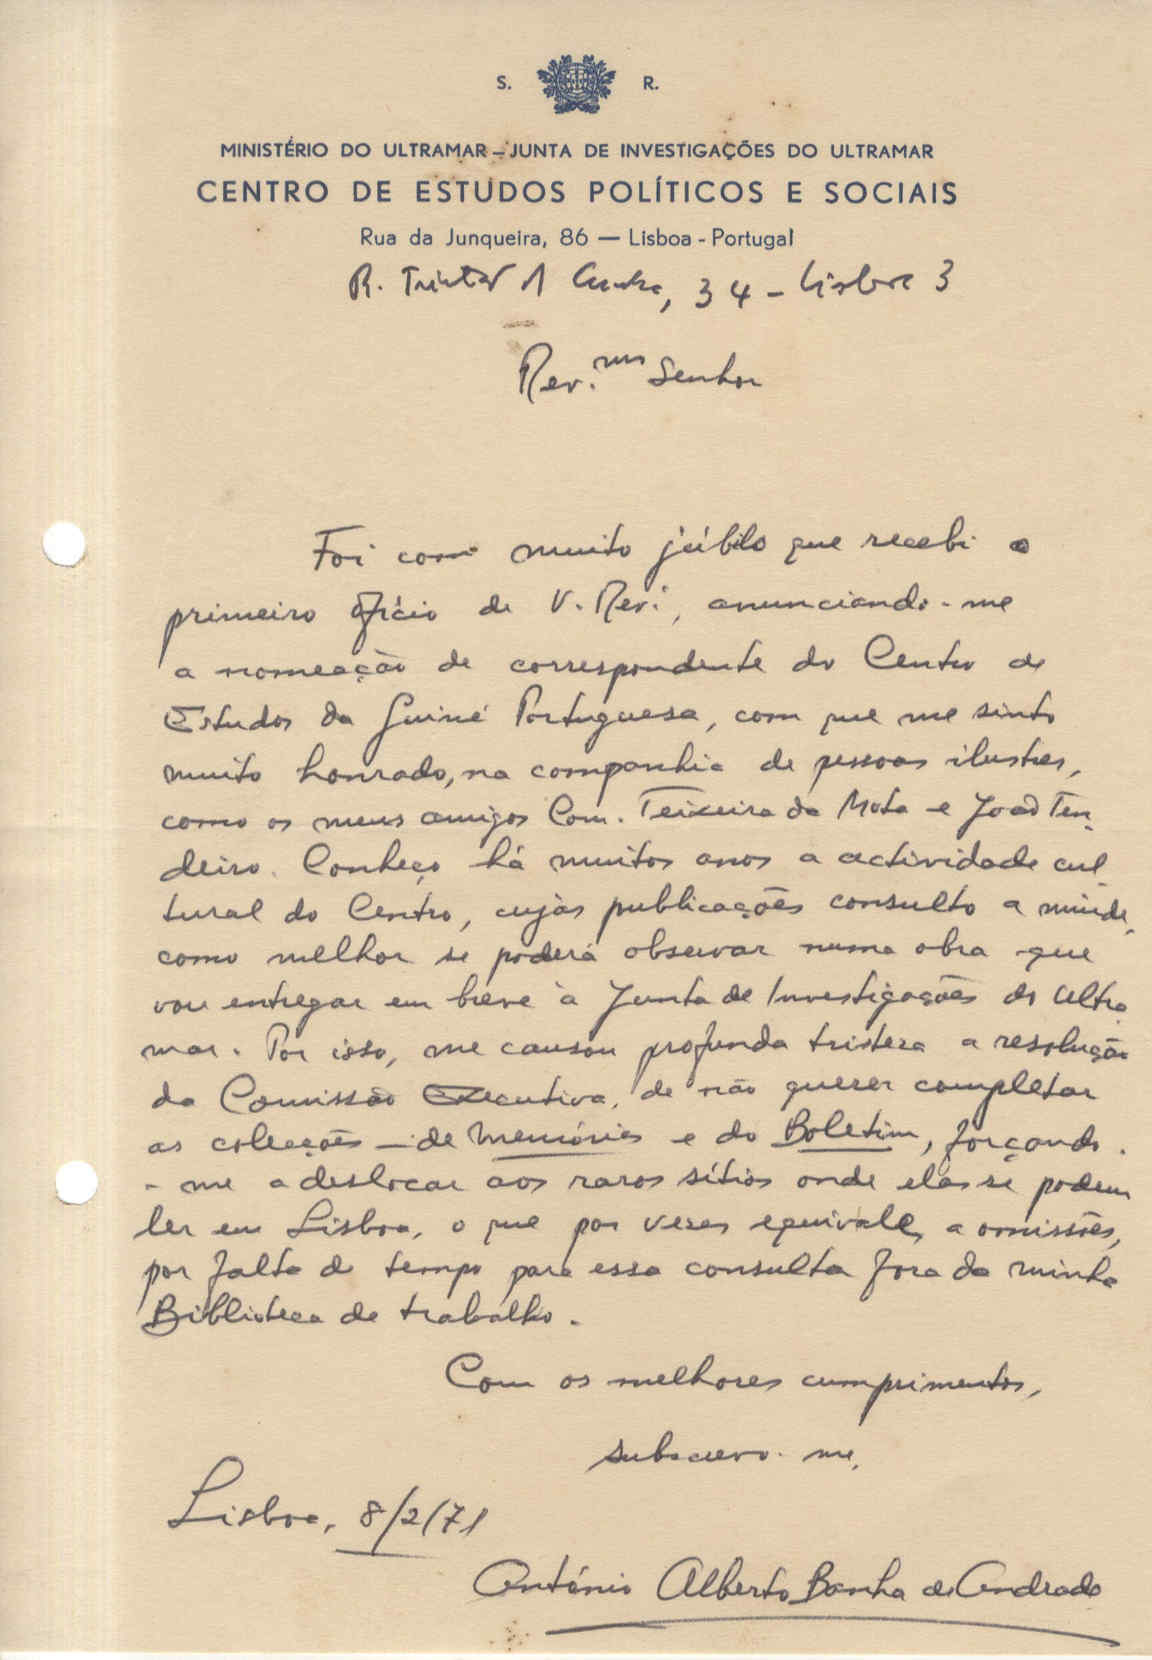 S. R.
MINISTÉRIO DO ULTRAMAR – JUNTA DE INVESTIGAÇÕES DO ULTRAMAR
CENTRO DE ESTUDOS POLÍTICOS E SOCIAIS
Rua da Junqueira, 86 — Lisboa - Portugal
R. Tristão da Cunha, 34 - Lisboa 3
Rev.mo Senhor
Foi com muito júbilo que recebi o
primeiro ofício de V. Rev.ª, anunciando-me
a nomeação de correspondente do Centro de
Estudos da Guiné Portuguesa, com que me sinto
muito honrado, na companhia de pessoas ilustres,
como os meus amigos Com. Teixeira da Mota e João Ten-
deiro. Conheço há muitos anos a actividade cul-
tural do Centro, cujas publicações consulto a miúde,
como melhor se poderá observar numa obra que
vou entregar em breve à Junta de Investigações do Ultra-
mar. Por isso, me causou profunda tristeza a resolução
da Comissão Executiva, de não querer completar
as colecções — de Memórias e do Boletim, forçando-
-me a deslocar aos raros sítios onde elas se podem
ler em Lisboa, o que por vezes equivale a omissões,
por falta de tempo para essa consulta fora da minha
Biblioteca de trabalho.
Com os melhores cumprimentos,
subscrevo-me,
Lisboa, 8/2/71
António Alberto Banha de Andrade